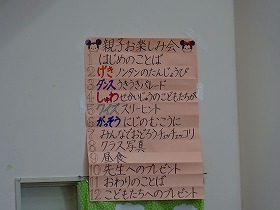 親子お楽しみ会
1 はじめのことば
2 げき ノンタンのたんじょうび
3 ダンス うきうきパレード
4 しゅわ せかいじゅうのこどもたちが
5 クイズ スリーヒント
6 がっそう にじのむこうに
7 みんなでおどろうチョチョコリ
8 クラス写真
9 昼食
10 先生へのプレゼント
11 おわりのことば
12 こどもたちへのプレゼント